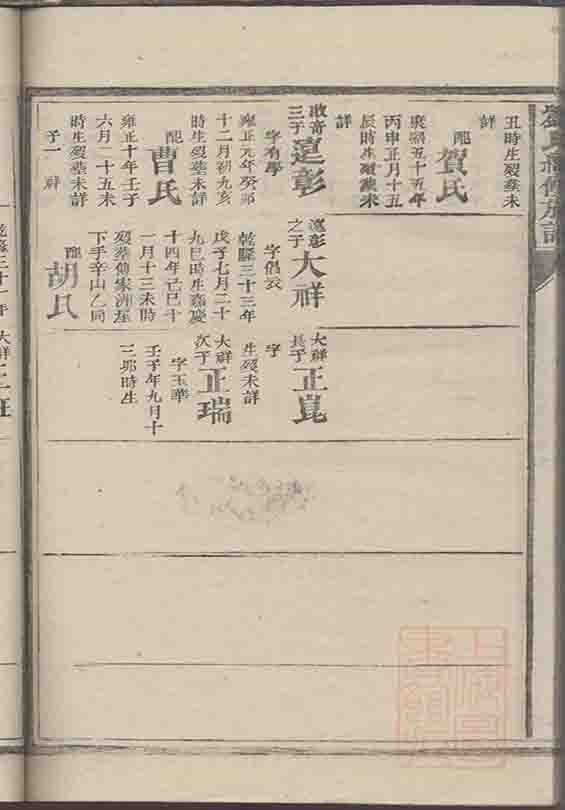 丑時生殁葬未
詳
配
賀氏
康熙五十五年
丙申正月十五
辰時生殁葬未
詳
啟奇
三子
遠彰
字有學
雍正元年癸卯
十二月初九亥
時生殁葬未詳
配
曹氏
雍正十年壬子
六月二十五未
時生殁葬未詳
子一 祥
遠彰
之子
大祥
字倡云
乾隆三十三年
戊子七月二十
九巳時生嘉慶
十四年己巳十
一月十三未時
殁葬傅家洲屋
下手辛山乙向
配
胡氏
大祥
長子
正崑
字
生殁未詳
大祥
次子
正瑞
字玉華
壬子年九月十
三卯時生